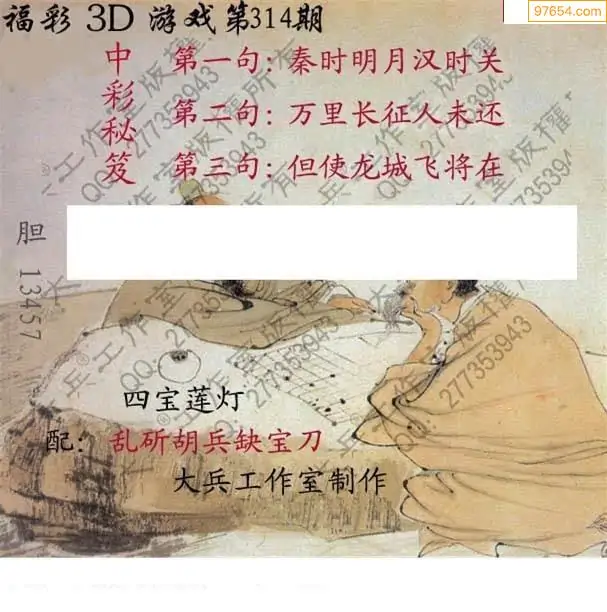 97654.com
福彩 3D 游戏第314期
中彩秘笈
第一句:秦时明月汉时关
第二句:万里长征人未还
第三句:但使龙城飞将在
胆 13457
四宝莲灯
配: 乱斫胡兵缺宝刀
大兵工作室制作
大兵®工作室版权所有
QQ:277353943